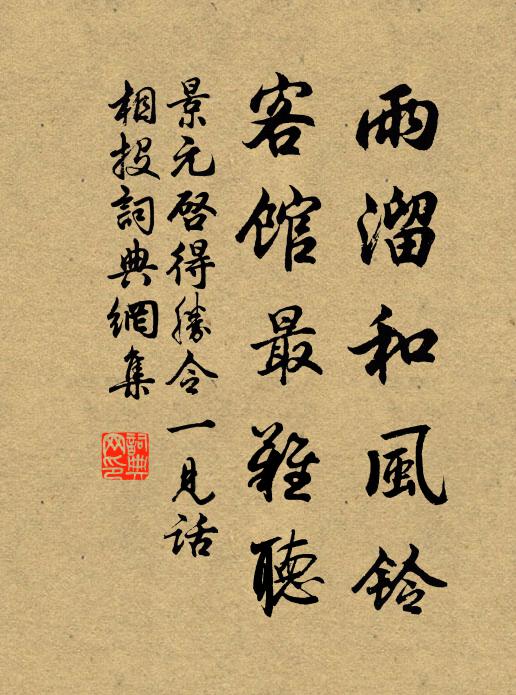 雨溜和風鈴
客馆最難聽
景元啓得勝令一見話
相投詞典網集
詞典網印